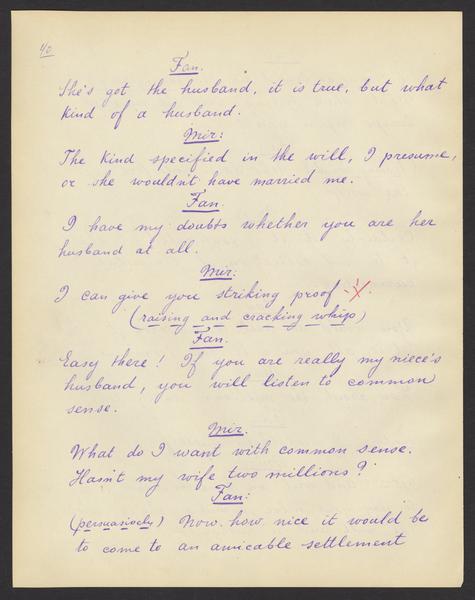 40
Fan.
She's got the husband, it is true, but what
kind of a husband.
Mir:
The kind specified in the will, I presume,
or she wouldn't have married me.
Fan.
I have my doubts whether you are her
husband at all.
Mir:
I can give you striking proof.
(raising and cracking whip)
Fan.
Easy there! If you are really my niece's
husband, you will listen to common
sense.
Mir.
What do I want with common sense.
Hasn't my wife two millions?
Fan:
(persuasively) Now how nice it would be
to come to an amicable settlement